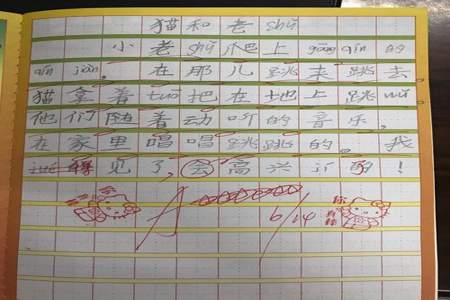 猫和老shǔ
小老shǔ爬上gāng qín的
qín jiàn，在那儿跳来跳去
猫拿着tuō把在地上跳wǔ
他们随着动听的音乐，
在家里唱唱跳跳的。我
见了，去高兴了！
A
6/14
你真棒